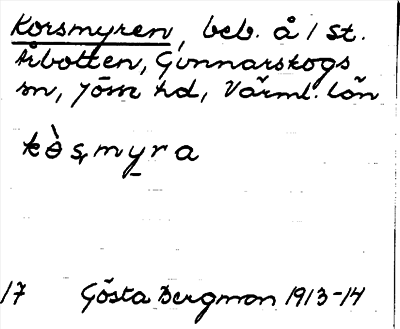 Korsmyren, beb. å 1 st.
Årbotten, Gunnarskogs
sn, Jösse hd, Värml. län
kòsmyra
17 Gösta Bergman 1913-14